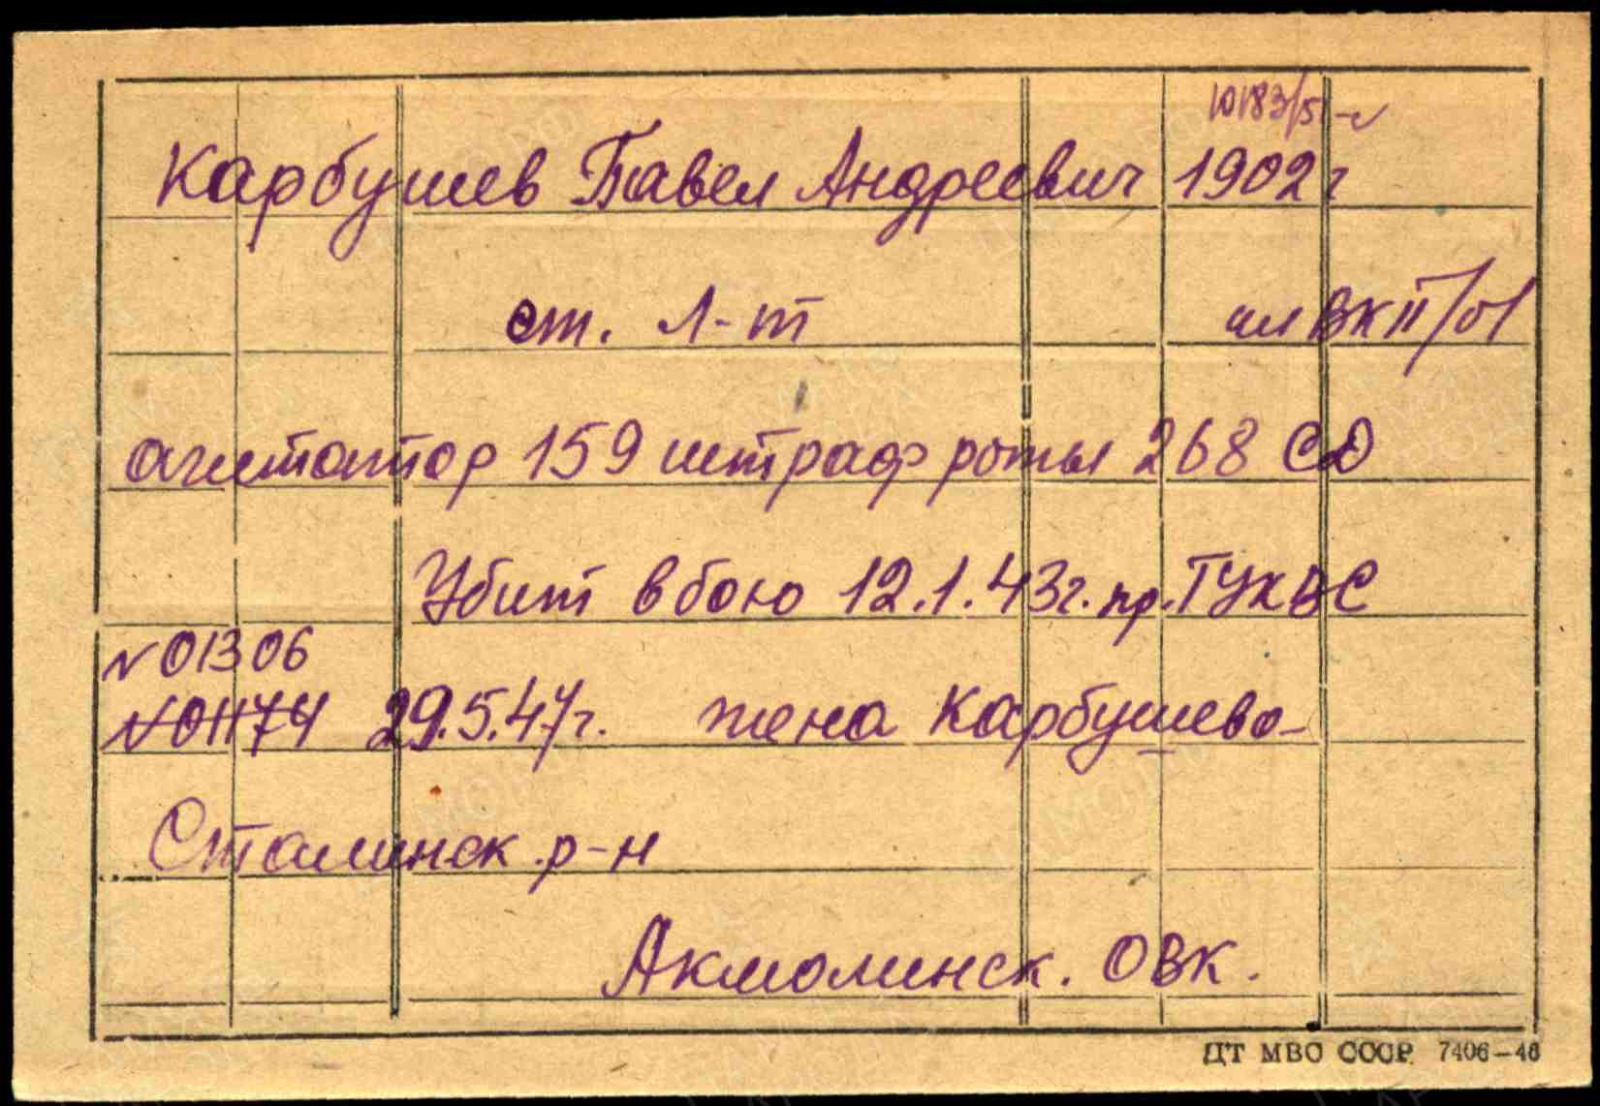 10183/51-с
Карбушев Павел Андреевич 1902г
ст. Л-т чл ВКП/б/
агитатор 159 штраф роты 268 СД
Убит в бою 12.1.43г. пр. ГУК ВС
N 01306
N 01174 29.5.47г. жена Карбушева-
Сталинск. р-н
Акмолинск. ОВК.
ЦТ МВО СССР 7406-46